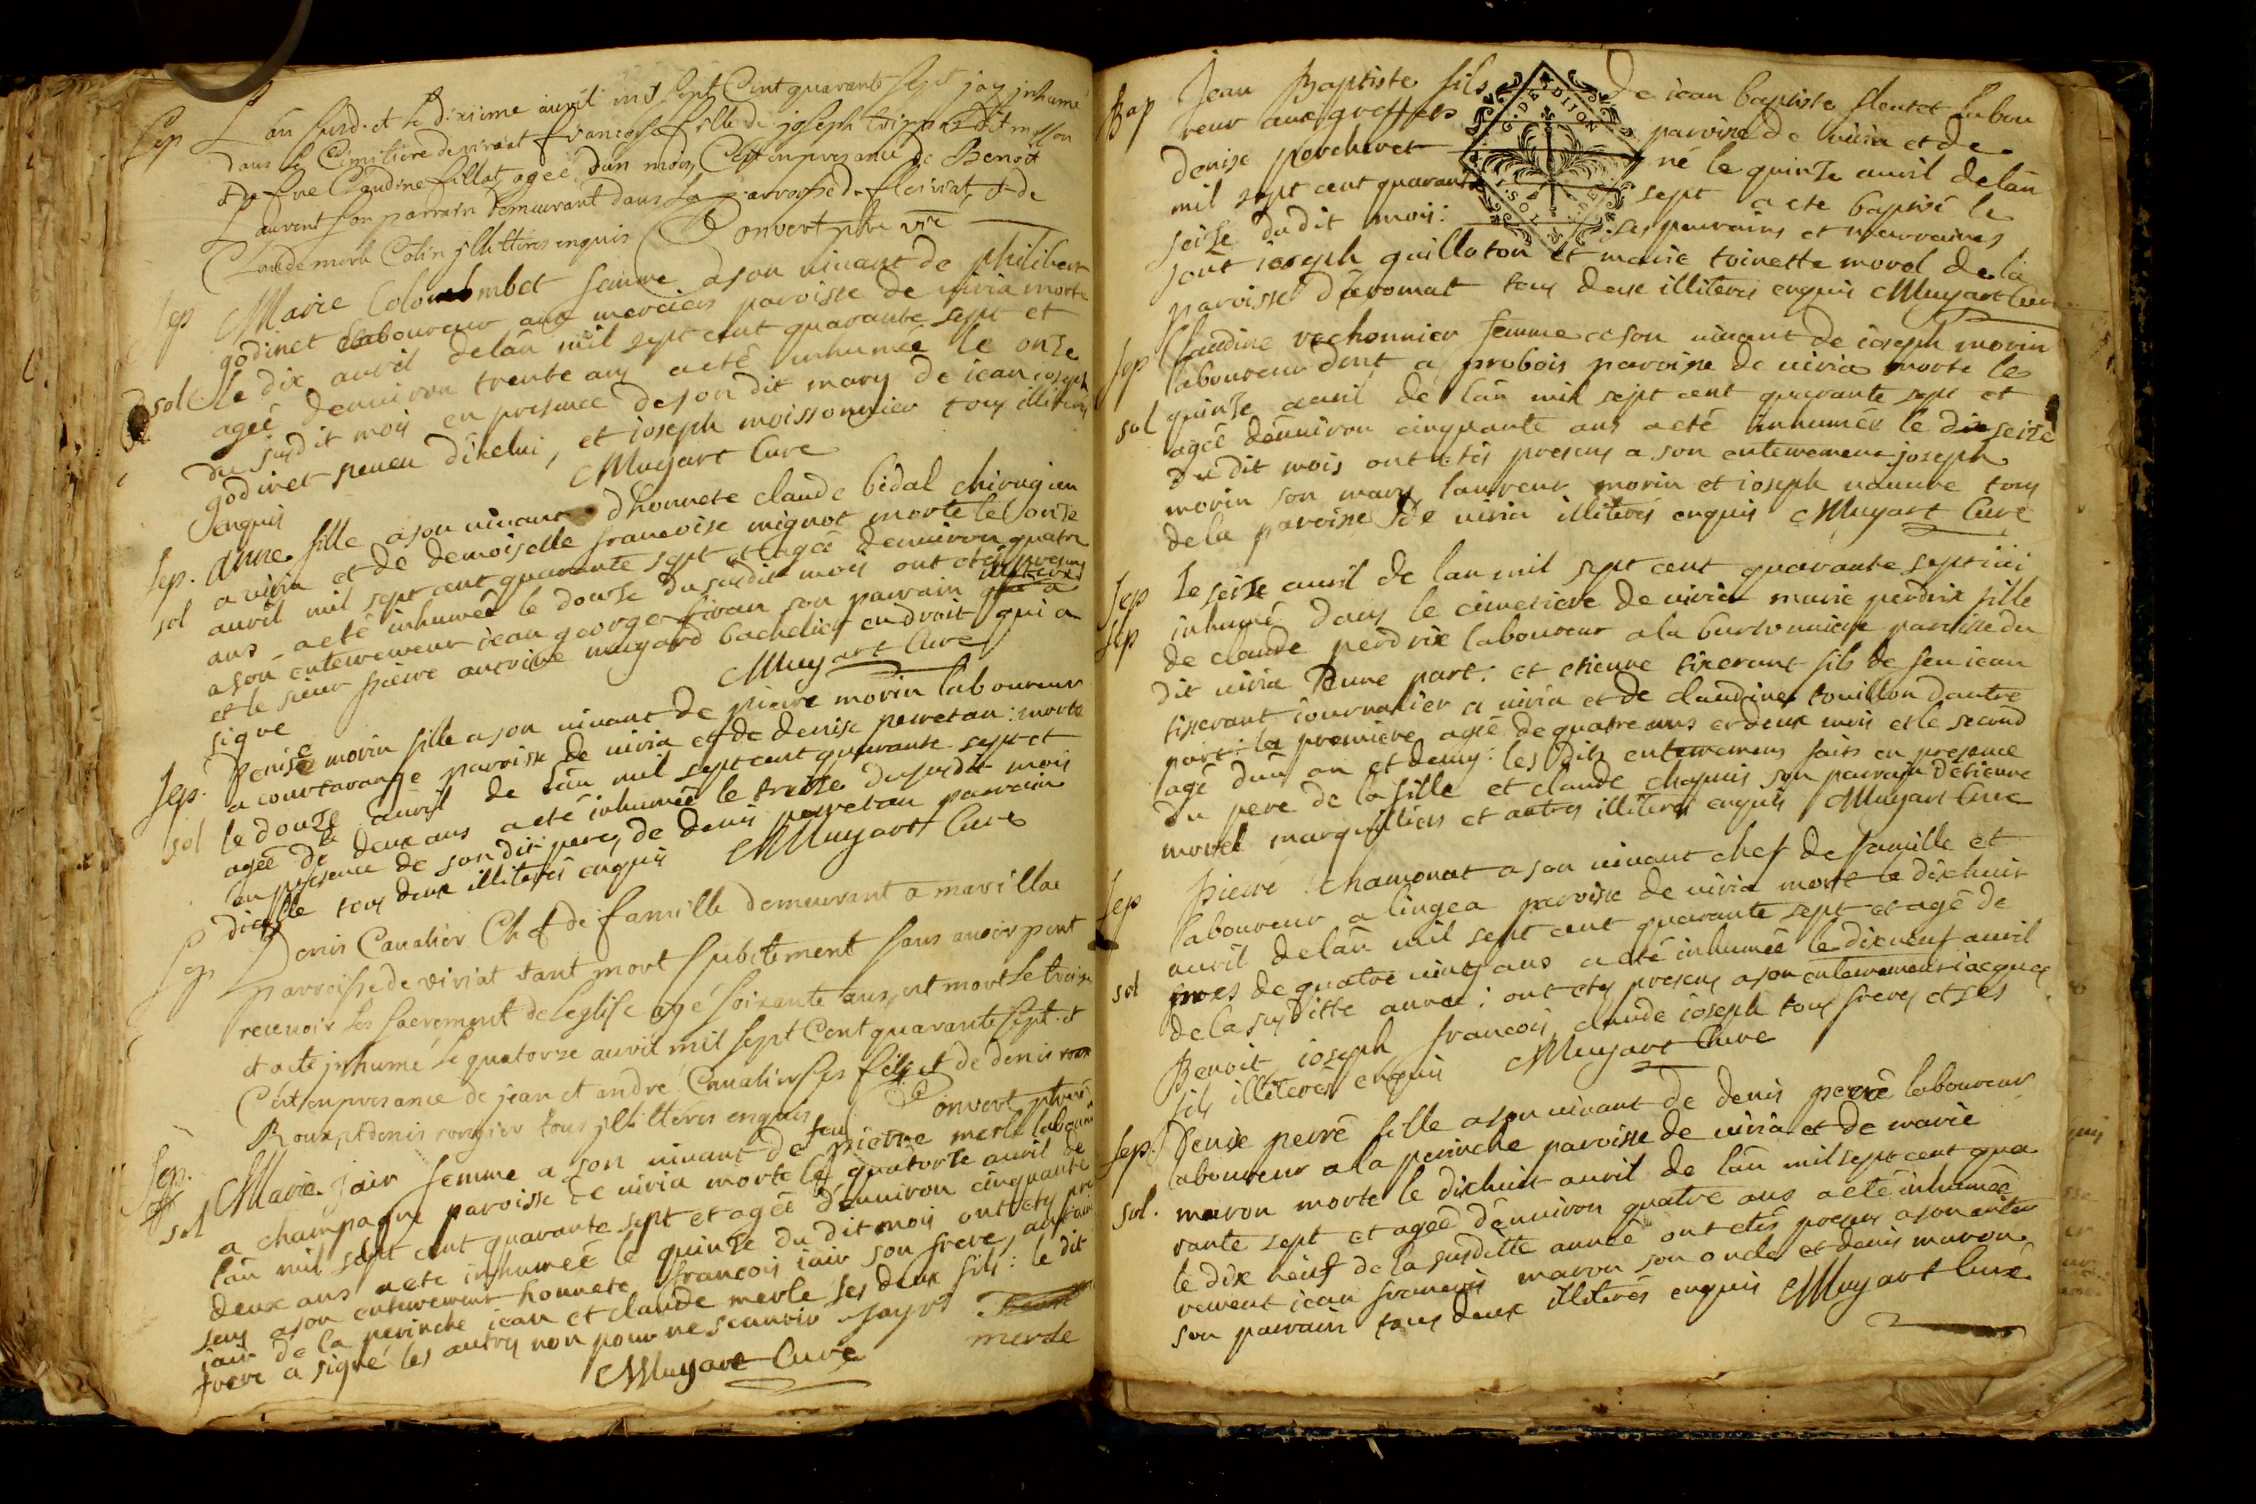 Sep
L'an susd. et le dixième avril mil sept Cent quarante sept j'ay inhumé
dans le Cimetiere de viriat francoise fille de joseph dit
et de Claudine fillot agee d'un mois C'est en presance de Benoit
Laurent son parrain demeurant dans la parroisse de fleiriat, et de
Claude mork Colin illitteres enquis Convert ptre vre
Sep
Marie Colombet femme a son vivant de philibert
godinet laboureur aux merciers paroisse de viria morte
sol le dix avril de lan mil sept cent quarante sept et
agée denviron trente ans a eté inhumée le onze
du susdit mois en presence de son dit mary de iean joseph
godinet neveu dicelui, et ioseph moissonnier tous illiterés
enquis Muyart Curé
Sep. Anne fille a son vivant dhonnete claude bidal chirugien
a viria et de demoiselle francoise mignot morte le onze
sol avril mil sept cent quarante sept et agée denviron quatre
ans a eté inhumée le douze du susdit mois ont etés presens
a son enterrement iean george son parrain illiteré
et le sieur pierre antoine muyard bachelier en droit qui a
signé Muyart Curé
Sep. Denise morin fille a son vivant de pierre morin laboureur
a courtavange paroisse de viria et de denise perretan: morte
sol le douze avril de lan mil sept cent quarante sept et
agée de deux ans a eté inhumée le treize du susdit mois
en presence de son dit pere, de denis perretan parrain
dicelle tous deux illiterés enquis Muyart Curé
Sep Denis Cavalier Chef de famille demeurant a marillac
parroisse de viriat etant mort subitement sans avoir peut
recevoir les sacrement de leglise agé soixante ans, est mort le treize
et a eté inhumé le quatorze avril mil sept Cent quarante sept. et
C'est en presance de jean et andré Cavalier ses fils et de denis
Roux, et denis rongier tous illitteres enquis Convert ptre vre
Sep. Marie jair femme a son vivant de feu pierre merle laboureur
sol a champagne paroisse de viria morte le quatorze avril de
lan mil sept cent quarante sept et agée denviron cinquante
deux ans a eté inhumée le quinze du dit mois ont etés pre
sens a son enterrement honnete francois iair son frere,
iair de la perinche iean et claude merle ses deux fils: le dit
frere a signé les autres non pour ne scavoir jayr
merle
Muyart Curé
Bap Jean Baptiste fils de iean baptiste floutet labou
reur aux greffets paroisse de viria et de
denise percheret né le quinze avril de lan
mil sept cent quarante sept a eté baptisé le
seize du dit mois: ses parrains et marraines
sont ioseph guillaton et marie toinette morel de la
paroisse d'aromat tous deux illiterés enquis Muyart Curé
G. DE DIJON
Sep Claudine vechonnier femme a son vivant de ioseph morin
laboureur dont a probois paroisse de viria morte le
sol quinze avril de lan mil sept cent quarante sept et
agée denviron cinquante ans a eté inhumée le seize
du dit mois ont etés presens a son enterrement joseph
morin son mary laurent morin et ioseph tous
de la paroisse de viria illiterés enquis Muyart Curé
Sep Le seize avril de lan mil sept cent quarante sept iai
Sep inhumé dans le cimetiere de viria marie perdrix fille
de claude perdrix laboureur a la paroisse du
dit viria d'une part. et etienne tixerant fils de feu iean
tixerant iournalier a viria et de claudine touillon dautre
part. la premiere agée de quatre ans et deux mois et le second
agé d'un an et demy: les dits enterremens faits en presence
du pere de la fille et claude chapuis son parrain d'etienne
morel marguillier et autres illiterés enquis Muyart Curé
Sep Pierre chamonat a son vivant chef de famille et
laboureur a lingea paroisse de viria mort le dixhuit
avril de lan mil sept cent quarante sept et agé de
sol pres de quatre vints ans a eté inhumée le dixneuf avril
de la susditte année: ont etés presens a son enterrement iacques
Benoit ioseph francois claude ioseph tous freres et ses
fils illiterés enquis Muyart Curé
Sep. Denise perré fille a son vivant de denis perré laboureur
laboureur a la perinche paroisse de viria et de marie
sol. maron morte le dixhuit avril de lan mil sept cent qua
rante sept et agée denviron quatre ans a eté inhumée
le dix neuf de la susditte année ont etés presens a son enter
rement iean francois maron son oncle et denis maron
son parrain tous deux illiterés enquis Muyart Curé